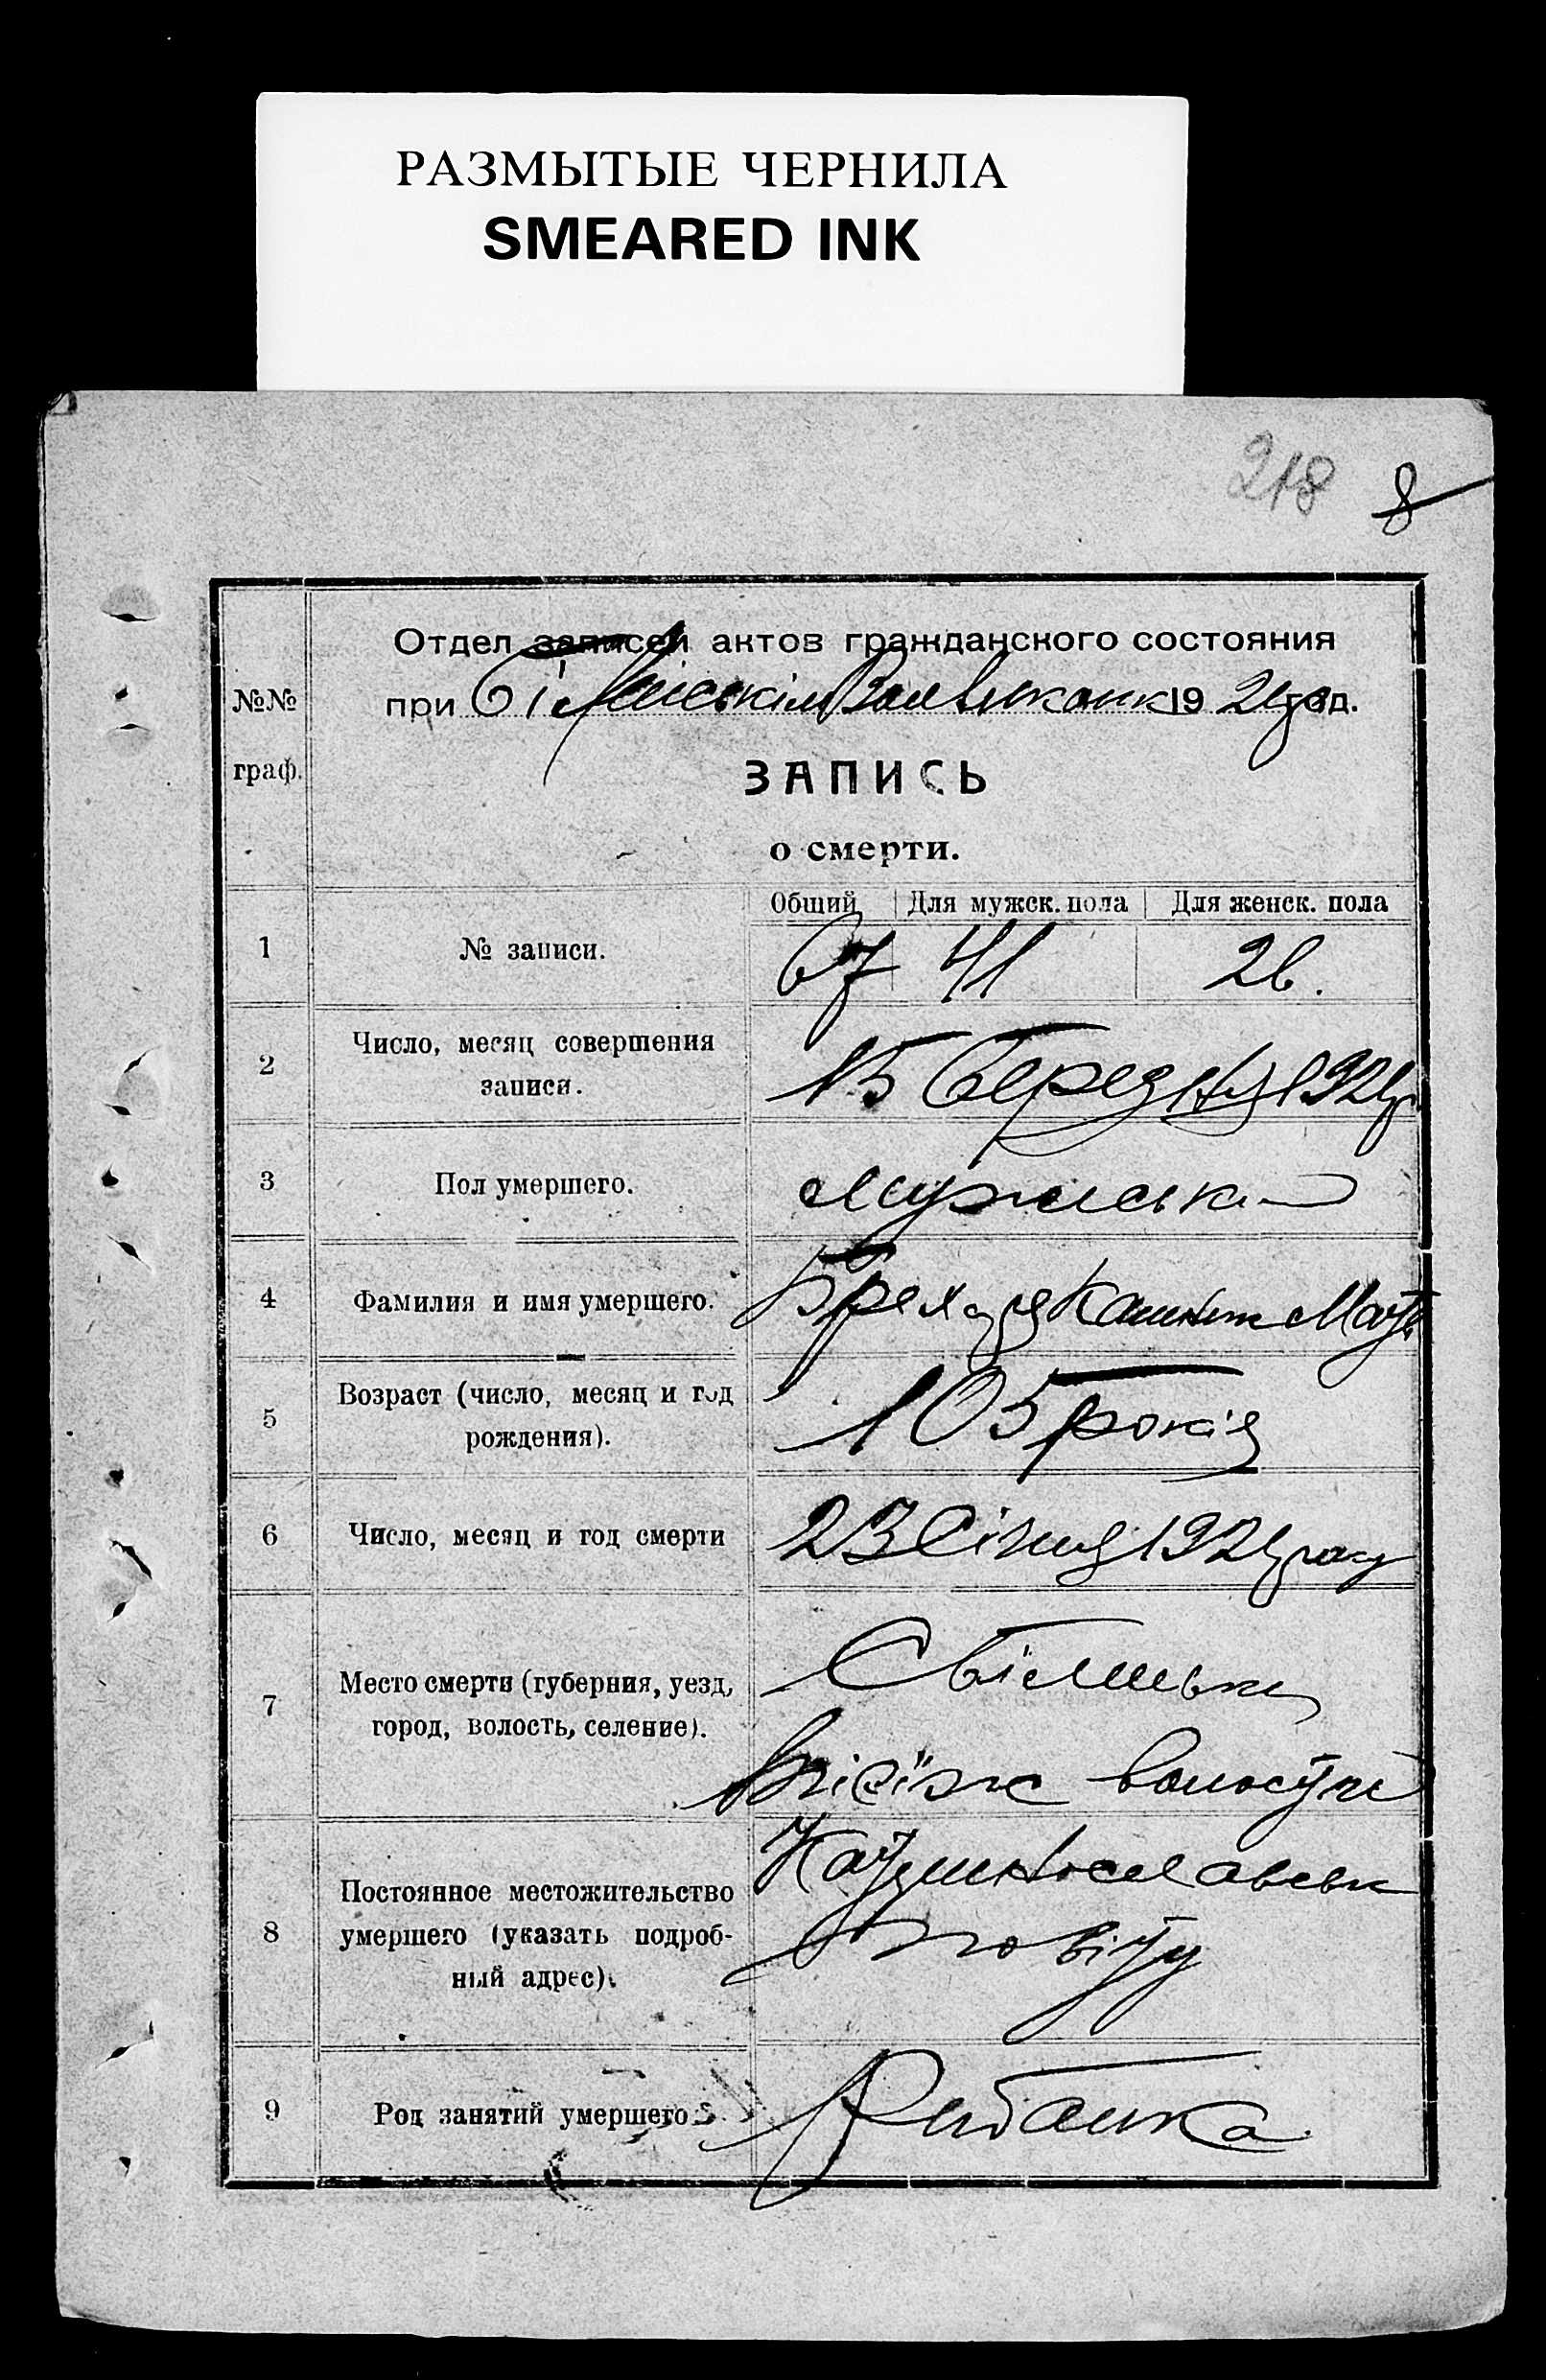 РАЗМЫТЫЕ ЧЕРНИЛА
SMEARED INK
218 8
Отдел записей актов гражданского состояния
при 1924 год.
№№
граф.
ЗАПИСЬ
о смерти.
Общий Для мужск. пола Для женск. пола
1 № записи. 67 41 26.
2 Число, месяц совершения
записи. 15 Березня 1924р
3 Пол умершего. Мужськ
4 Фамилия и имя умершего.
5 Возраст (число, месяц и год
рождения). 105 років
6 Число, месяц и год смерти 23 Січня 1924 року
7 Место смерти (губерния, уезд,
город, волость, селение).
волости
8 Постоянное местожительство
умершего (указать подроб-
ный адрес).
Катериносславськ
повіту
9 Род занятий умершего.
Рибалка